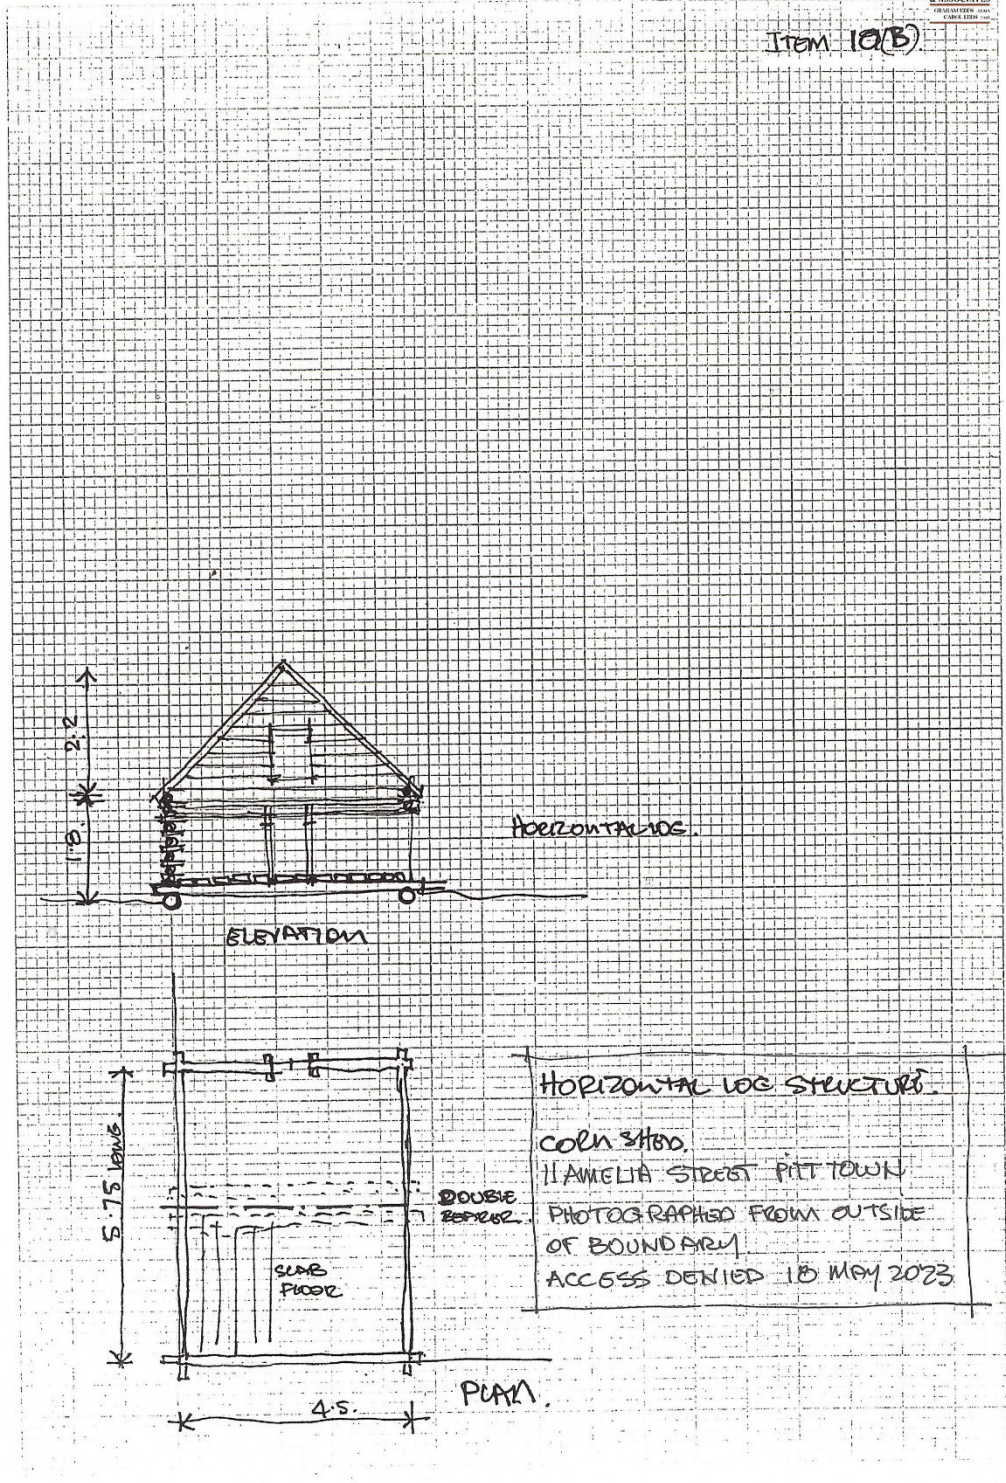 & ASSOCIATES
GRAHAM EDDS
CAROL EDDS
ITEM 10(B)
2.2
1.8.
HORIZONTAL LOG.
ELEVATION
5.75 LONG.
DOUBLE
BEARER.
SLAB
FLOOR
4.5.
PLAN.
HORIZONTAL LOG STRUCTURE.
CORN SHED.
11 AMELIA STREET PITT TOWN
PHOTOGRAPHED FROM OUTSIDE
OF BOUNDARY
ACCESS DENIED 18 MAY 2023